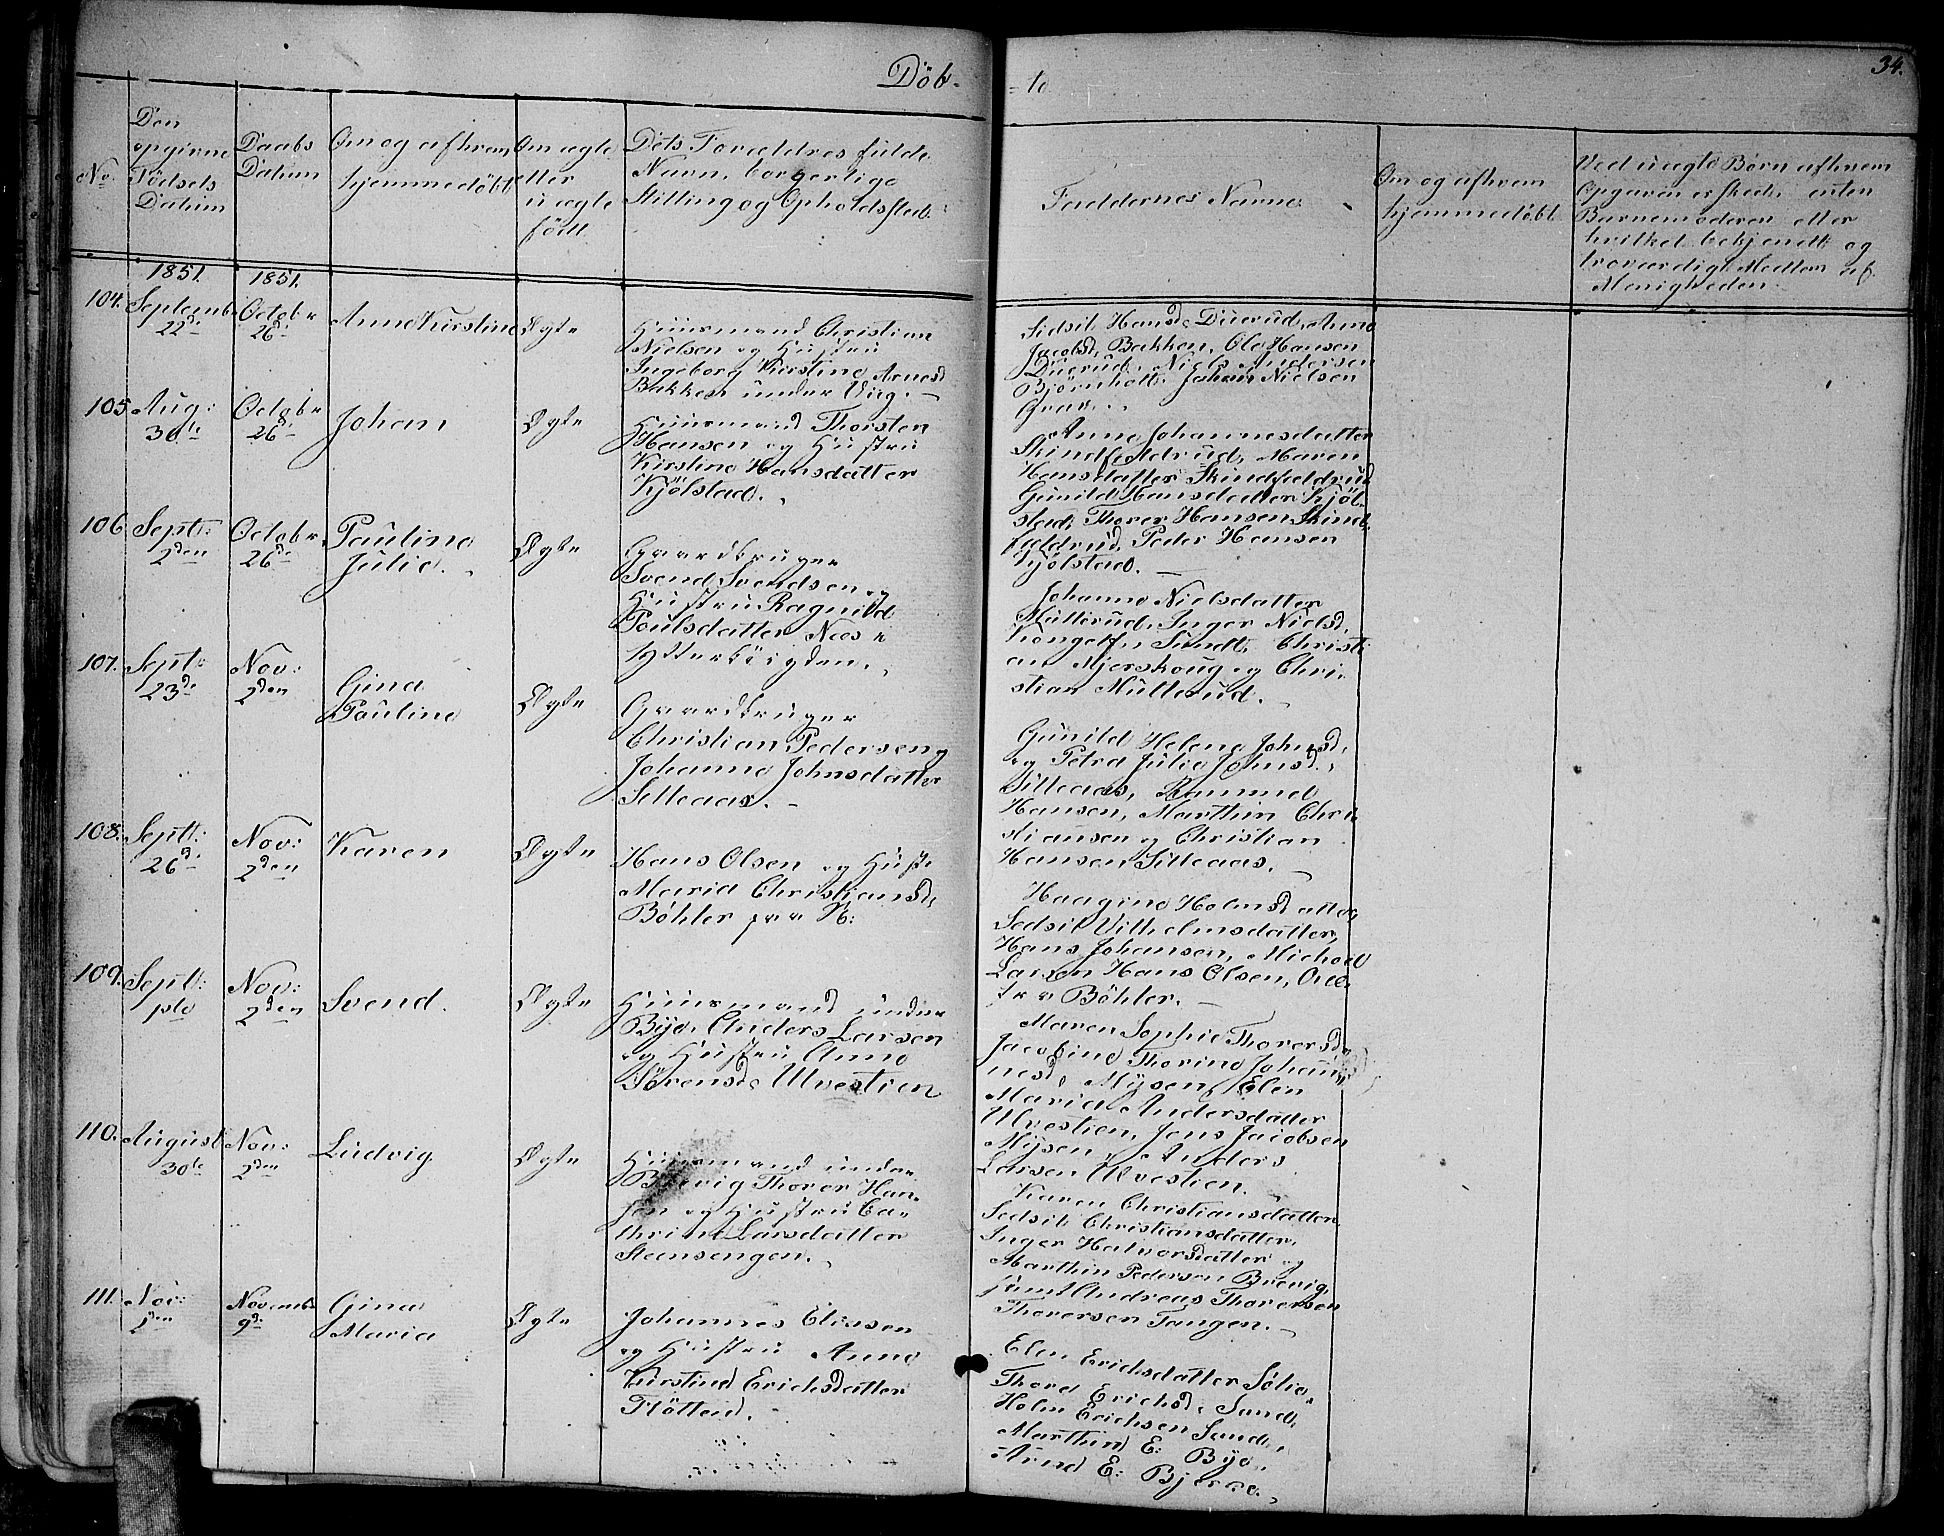 Döb-
-te
34.
No.
Den
opgivne
Födsels
Datum
Daabs
Datum
Om og af hvem
hjemmedöbt
Om ægte
eller
uægte
födt
Dets Forældres fulde
Navn, borgerlige
Stilling og Opholdssted
Faddernes Navne
Om og af hvem
hjemmedöbt
Ved uægte Börn af hvem
Opgaven er skedt, enten
Barnemoderen eller
hvilket bekjendt og
troværdigt Medlem af
Menigheden
1851.
1851.
104.
Septembr
22de
Octobr
26de
Anne Kirstine
Ægte
Huusmand Christian
Nielsen og Hustru
Ingeborg Kirstine Arnesd
Bakken under Viig.
Sidsil Hansd. Duerud, Anne
Jacobsd. Bakken, Ole Hansen
Duerud, Niels Andersen
Björnholt, Johan Nielsen
Grav.
105
Aug:
30te
Octobr
26de
Johan
Ægte
Huusmand Thorsten
Hansen og Hustru
Kirstine Hansdatter
Kjölstad.
Anne Johannesdatter
Skindfældrud, Maren
Hansdatter Skindfældrud
Gunild Hansdatter Kjöl-
stad, Thorer Hansen Skind-
fældrud, Peder Hansen
Kjölstad.
106
Sept:
2den
Octobr
26de
Pauline
Julie.
Ægte
Gaardbruger
Svend Svendsen og
Hustru Ragnild
Poulsdatter Næs
Ytterböigden.
Johanne Nielsdatter
Mütterud, Inger Nielsd.
Kongelf, Sundt, Christi
an Mjerskoug og Chri-
stian Mütterud.
107.
Sept:
23de
Nov:
2den
Gina
Pauline
Ægte
Gaardbruger
Christian Pedersen og
Johanne Johnsdatter
Silleaas.
Gunild Helene Johnsd.
og Petra Julie Johnsd.
Silleaas, Rammed
Hansen, Marthin Chri-
stiansen og Christian
Hansen Silleaas.
108.
Sept:
26de
Nov:
2den
Karen
Ægte
Hans Olsen og Hust.
Maria Christiansd.
Böhler paa N:
Haagine Holmsdatter
Sedsil Vilhelmsdatter,
Hans Johansen, Michael
Larsen Hans Olsen,
Böhler.
109.
Sept:
Nov:
2den
Svend.
Ægte
Huusmand under
Bye, Anders Larsen
og Hustru Anne
Sörensd. Ulvestien
Maren Sophie Thorersd
Jacobine Thorine Johan-
nesd. Mysen, Elen
Maria Andersdatter
Ulvestien, Jens Jacobsen
Mysen, Anders
Larsen Ulvestien.
110.
August
30te
Nov:
2den
Ludvig
Ægte
Huusmand under
Brevig Thorer Han-
sen og Hustru Ca-
thrine Larsdatter
Steensengen.
Karen Christiansdatter
Sedsil Christiansdatter,
Inger Halvorsdatter og
Marthin Pedersen Brevig,
samt Andreas Thorersen
Thorersen Tangen.
111.
Nov:
1den
Novemb:
9de
Gina
Maria
Ægte
Johannes Eliasen
og Hustru Anne
Kirstine Erichsdatter
Flötteid.
Elen Erichsdatter Sölie
Thora Erichsd. Sund,
Holm Erichsen Sund,
Marthin E: Bye,
Arne E: Bjerke.